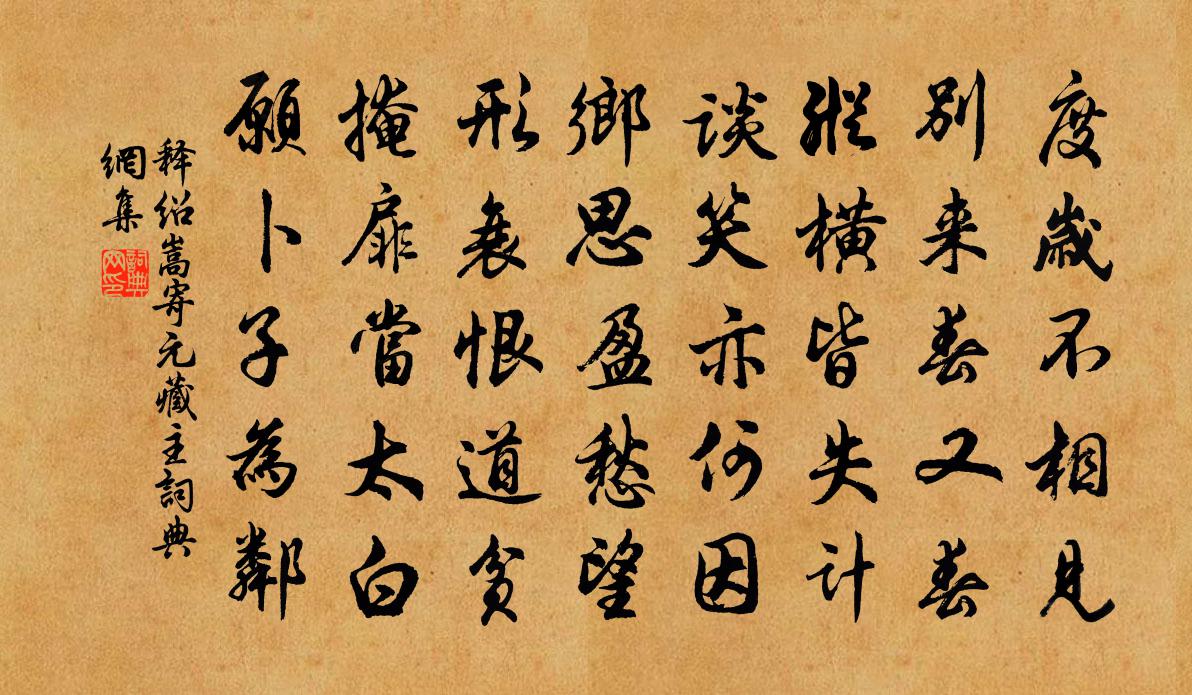 度歲不相見
別来春又春
縱橫皆失計
談笑亦何因
鄉思盈愁望
形衰恨道貧
掩扉當太白
願卜子為鄰
释绍嵩寄元藏主詞典
網集
詞典
网印